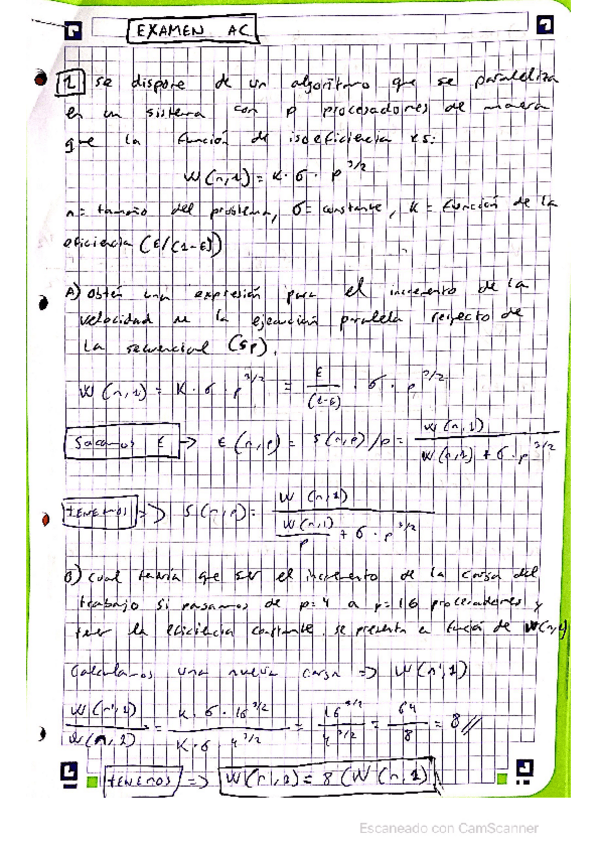 EXAMEN AC
1 se dispone de un algoritmo que se paraleliza
en un sistema con p procesadores de manera
que la función de isoeficiencia es:
W(n,1) = K · σ · p^3/2
n = tamaño del problema, σ = constante, K = función de la
eficiencia (E/(1-E))
A) Obtén una expresión para el incremento de la
velocidad en la ejecución paralela respecto de
la secuencial (Sp).
W(n,1) = K · σ · p^3/2 = E/(1-E) · σ · p^3/2
Sacamos E → E(n,p) = S(n,p)/p = W(n,1) / (W(n,1) + σ · p^3/2)
tenemos => S(n,p) = W(n,1) / (W(n,1)/p + σ · p^1/2)
B) Cual tendría que ser el incremento de la carga del
trabajo si pasamos de p=4 a p=16 procesadores y
tener la eficiencia constante, se presenta en función de W(n,1)
Calculamos una nueva carga => W(n',1)
W(n',1) / W(n,1) = K · σ · 16^3/2 / K · σ · 4^3/2 = 16^3/2 / 4^3/2 = 64/8 = 8//
tenemos => W(n',1) = 8(W(n,1))
Escaneado con CamScanner